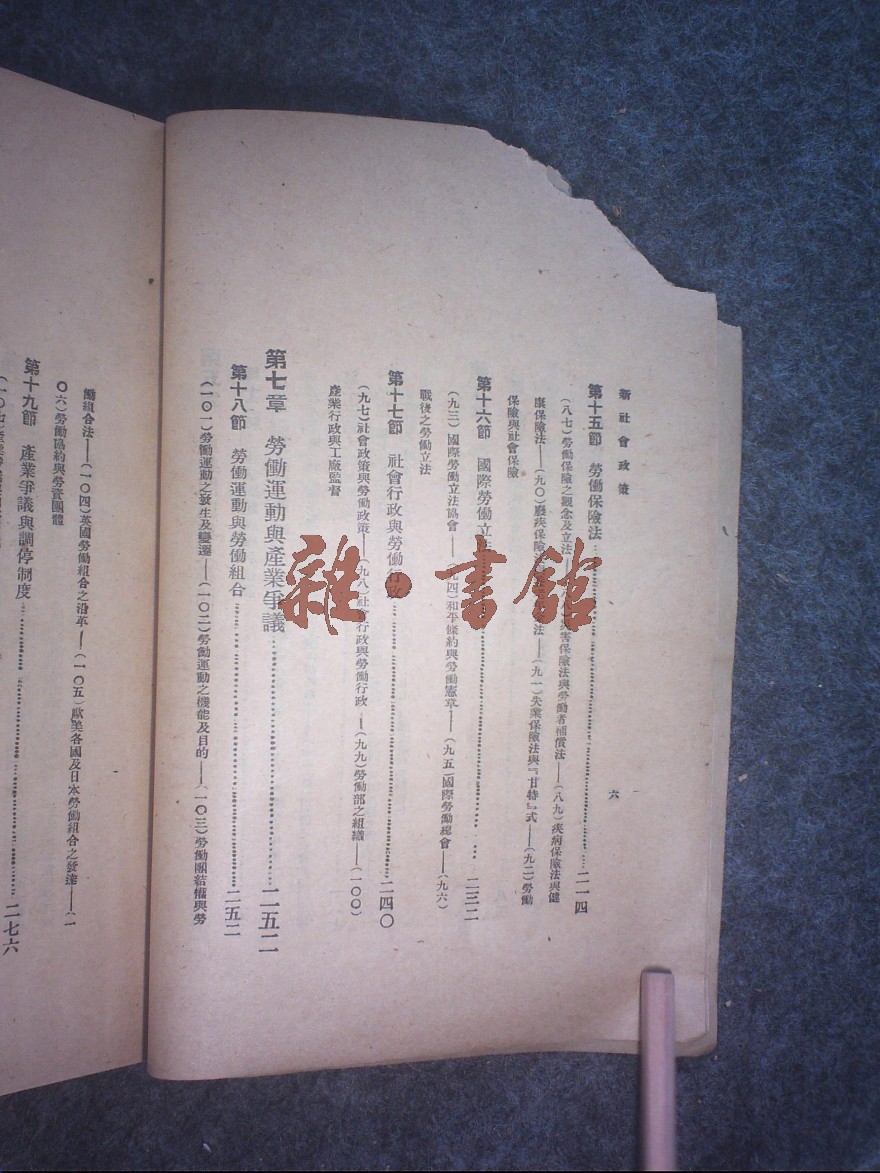 新社會政策
六
第十五節 勞働保險法……二一四
（八七）勞働保險之觀念及立法——害保險法與勞働者補償法——（八九）疾病保險法與健
康保險法——（九〇）廢疾保險法法——（九一）失業保險法與『甘特』式——（九二）勞働
保險與社會保險
第十六節 國際勞働立法……二三二
（九三）國際勞働立法協會——（九四）和平條約與勞働憲章——（九五）國際勞働總會——（九六）
戰後之勞働立法
第十七節 社會行政與勞働行政……二四〇
（九七）社會政策與勞働政策——（九八）社會行政與勞働行政——（九九）勞働部之組織——（一〇〇）
產業行政與工廠監督
第七章 勞働運動與產業爭議……二五二
第十八節 勞働運動與勞働組合……二五二
（一〇一）勞働運動之發生及變遷——（一〇二）勞働運動之機能及目的——（一〇三）勞働團結權與勞
働組合法——（一〇四）英國勞働組合之沿革——（一〇五）歐美各國及日本勞働組合之發達——（一
〇六）勞働協約與勞資團體
第十九節 產業爭議與調停制度……二七六
雜·書館